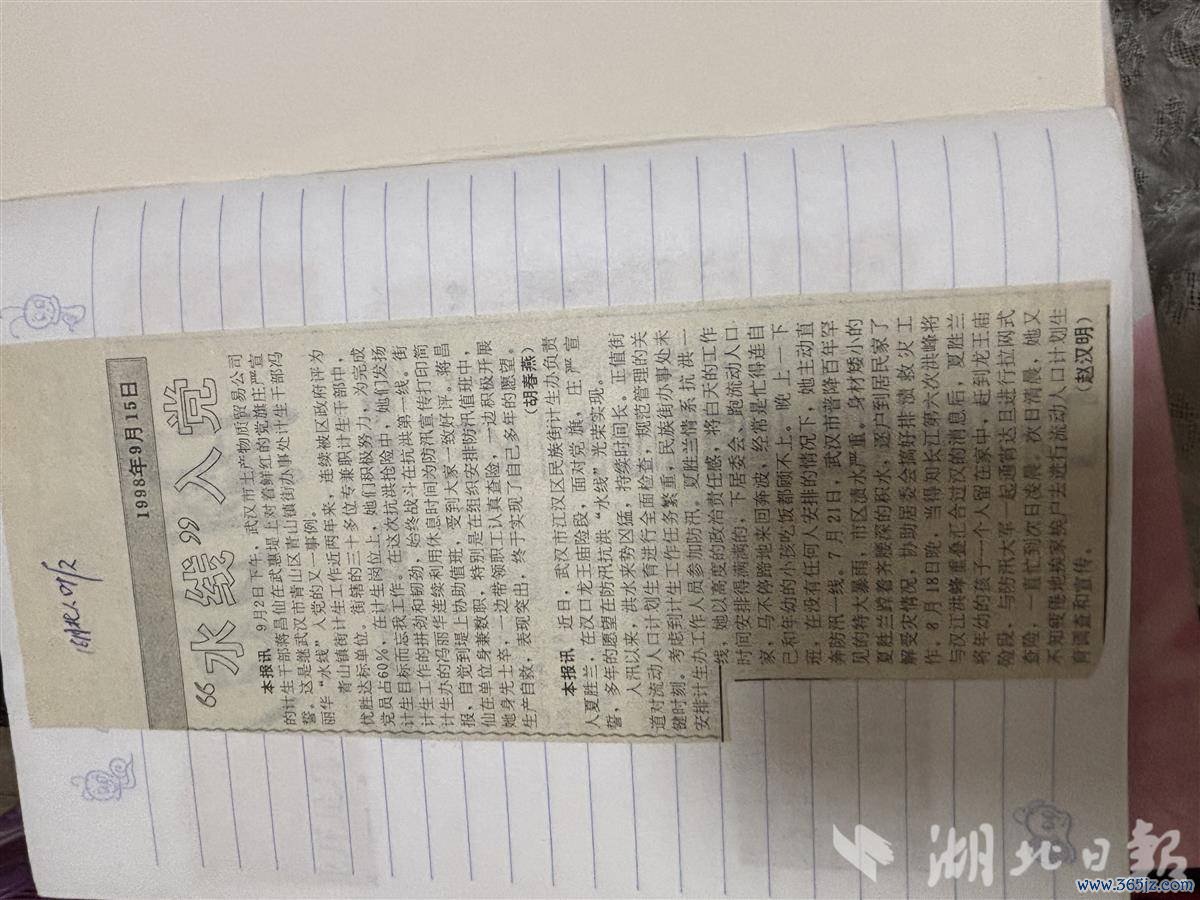 1998年9月15日
“水线”入党
本报讯 9月2日下午，武汉市生产物质贸易公司
的计生干部蒋昌仙在武惠堤上对着鲜红的党旗庄严宣
誓。这是继武汉市青山区青山镇街办事处计生干部冯
丽华“水线”入党的又一事例。
青山镇街计生工作近两年来，连续被区政府评为
优胜达标单位。街辖的三十多位专兼职计生干部中，
党员占60%，在计生岗位上，她们积极努力，为完成
计生目标而忘我工作。在这次抗洪抢险中，她们发扬
计生工作的拼劲和韧劲，始终战斗在抗洪第一线。街
计生办的冯丽华连续利用休息时间为防汛宣传打印简
报，自觉到堤上协助值班，受到大家一致好评。蒋昌
仙在单位身兼数职，特别是在组织安排防汛值班中，
她身先士卒，一边带领职工认真查险，一边积极开展
生产自救，表现突出，终于实现了自己多年的愿望。
（胡春燕）
本报讯 近日，武汉市江汉区民族街计生办负责
人夏胜兰，在汉口龙王庙险段，面对党旗，庄严宣
誓，多年的愿望在防汛抗洪“水线”光荣实现。
入汛以来，洪水来势凶猛，持续时间长。正值街
道对流动人口计划生育进行全面检查，规范管理的关
键时刻。考虑到计生工作任务繁重，民族街办事处未
安排计生办工作人员参加防汛。夏胜兰情系抗洪一
线，她以高度的政治责任感，将白天的工作
时间安排得满满的；下居委会、跑流动人口
家，马不停蹄地来回奔波，经常是忙得连自
己和年幼的小孩吃饭都顾不上。晚上一下
班，在没有任何人安排的情况下，她主动直
奔防汛一线。7月21日，武汉市普降百年罕
见的特大暴雨，市区渍水严重。身材矮小的
夏胜兰跨着齐腰深的积水，逐户到居民家了
解受灾情况，协助居委会搞好排渍救灾工
作。8月18日晚，当得知长江第六次洪峰将
与汉江洪峰重叠汇合过汉的消息后，夏胜兰
将年幼的孩子一个人留在家中，赶到龙王庙
险段，与防汛大军一起通宵达旦进行拉网式
查险，一直忙到次日凌晨。次日清晨，她又
不知疲倦地挨家挨户去进行流动人口计划生
育调查和宣传。
（赵汉明）
湖北日报
www.365jz.com